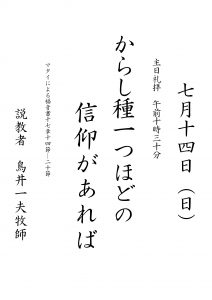 七月十四日（日）
主日礼拝　午前十時三十分
からし種一つほどの
信仰があれば
マタイによる福音書十七章十四節－二十節
説教者　鳥井一夫牧師